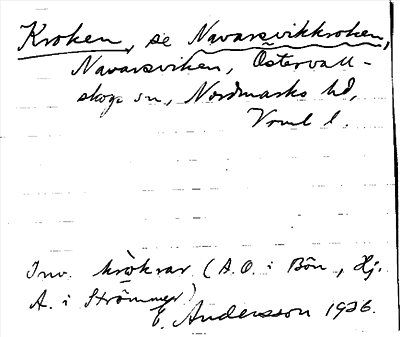 Kroken, se Navarsvikkroken,
Navarsviken, Östervall-
skogs sn, Nordmarks hd,
Vrml l.
Inv. krökrar (A.O. i Bön, Hj.
A. i Strömmer)
E. Andersson 1926.